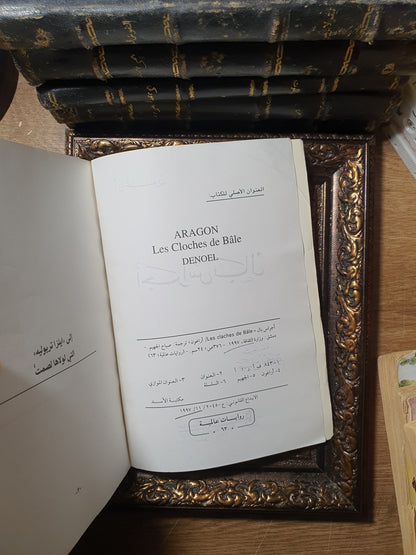 العنوان الأصلي للكتاب:
ARAGON
Les Cloches de Bâle
DENOEL
أجراس بال = Les cloches de Bâle / أراغون؛ ترجمة صياح الجهيم .-
دمشق: وزارة الثقافة، ١٩٩٧ .- ٣٧٦ ص؛ ٢٤ سم .- (روايات عالمية؛ ٦٣)
٢- العنوان
٣- العنوان الموازي
٤- أراغون
٥- الجهيم
٦- السلسلة
مكتبة الأسد
الإيداع القانوني: ع - ٢٠٤٥ / ١١ / ١٩٩٧
روايات عالمية
« ٦٣ »
إلى «إيلزا تريوليه»
التي لولاها لصمتّ